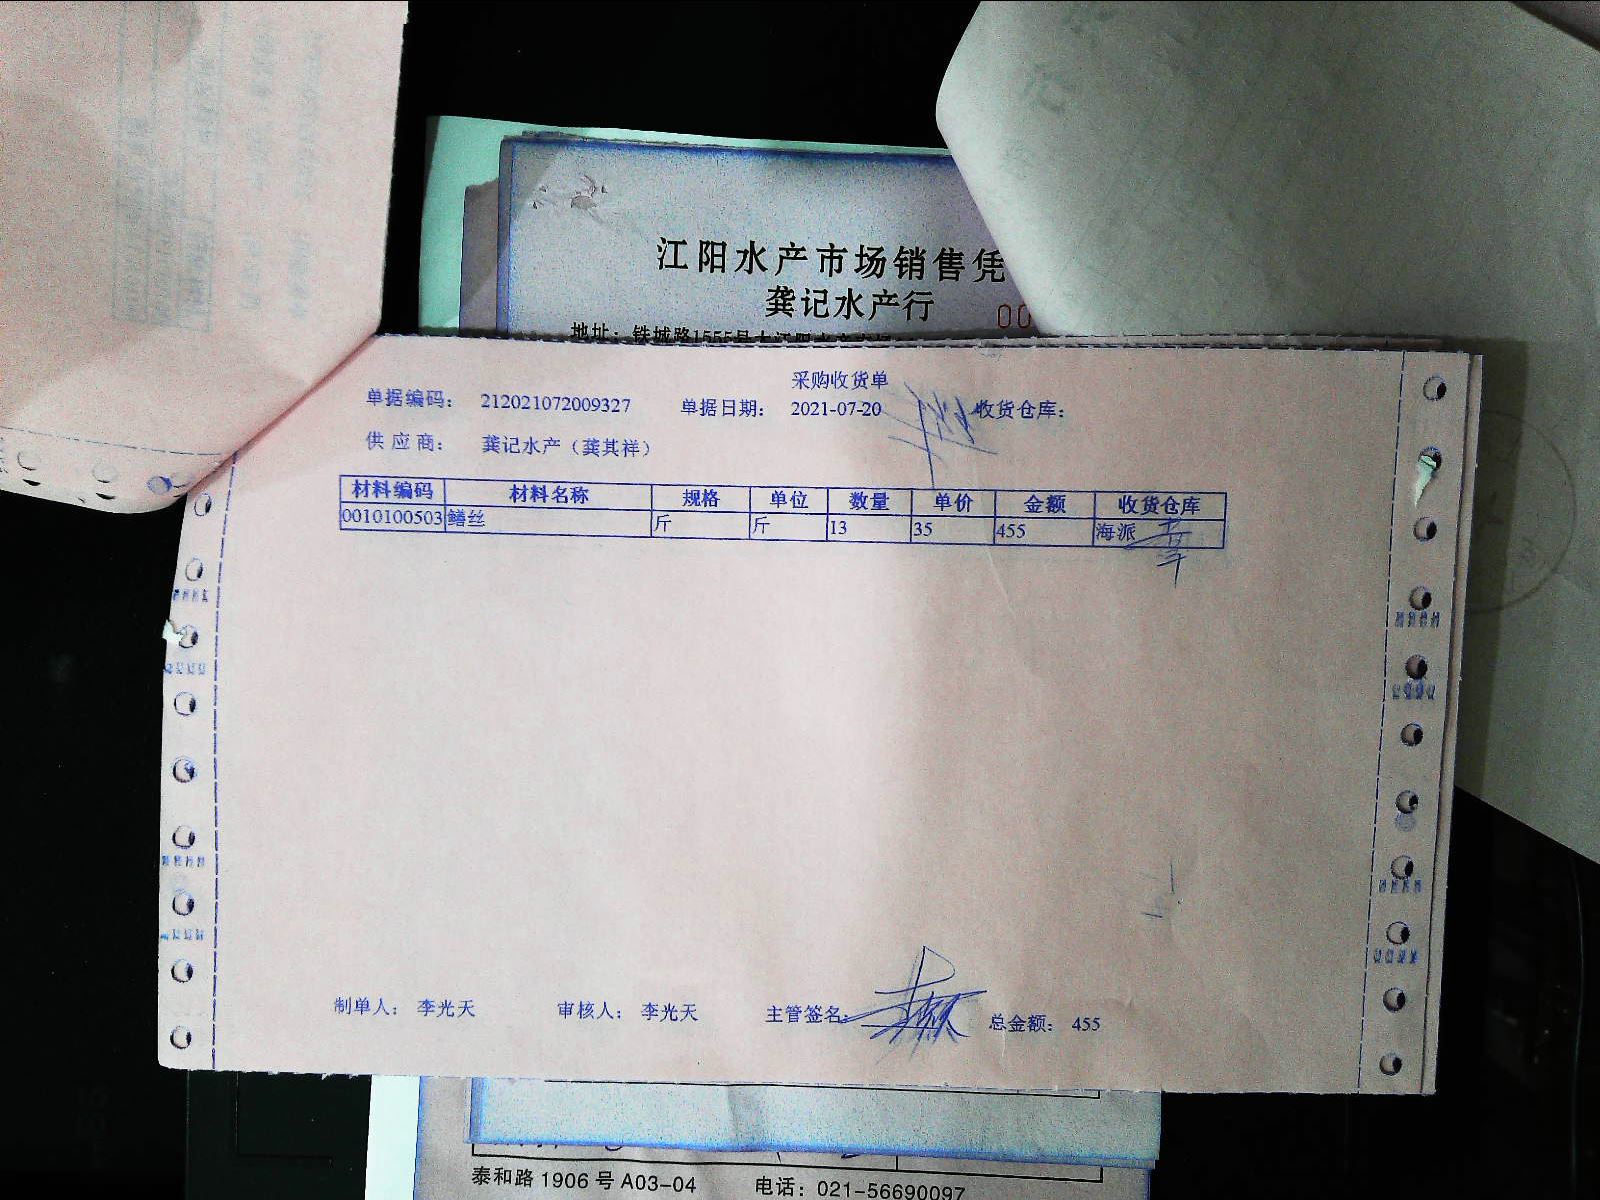 江阳水产市场销售凭
龚记水产行
00
地址：铁城路1555号大江阳水产市场
采购收货单
单据编码： 212021072009327 单据日期： 2021-07-20 收货仓库：
供应商： 龚记水产（龚其祥）
材料编码 材料名称 规格 单位 数量 单价 金额 收货仓库
0010100503 鳝丝 斤 斤 13 35 455 海派
制单人： 李光天 审核人： 李光天 主管签名： 总金额： 455
泰和路1906号A03-04 电话：021-56690097